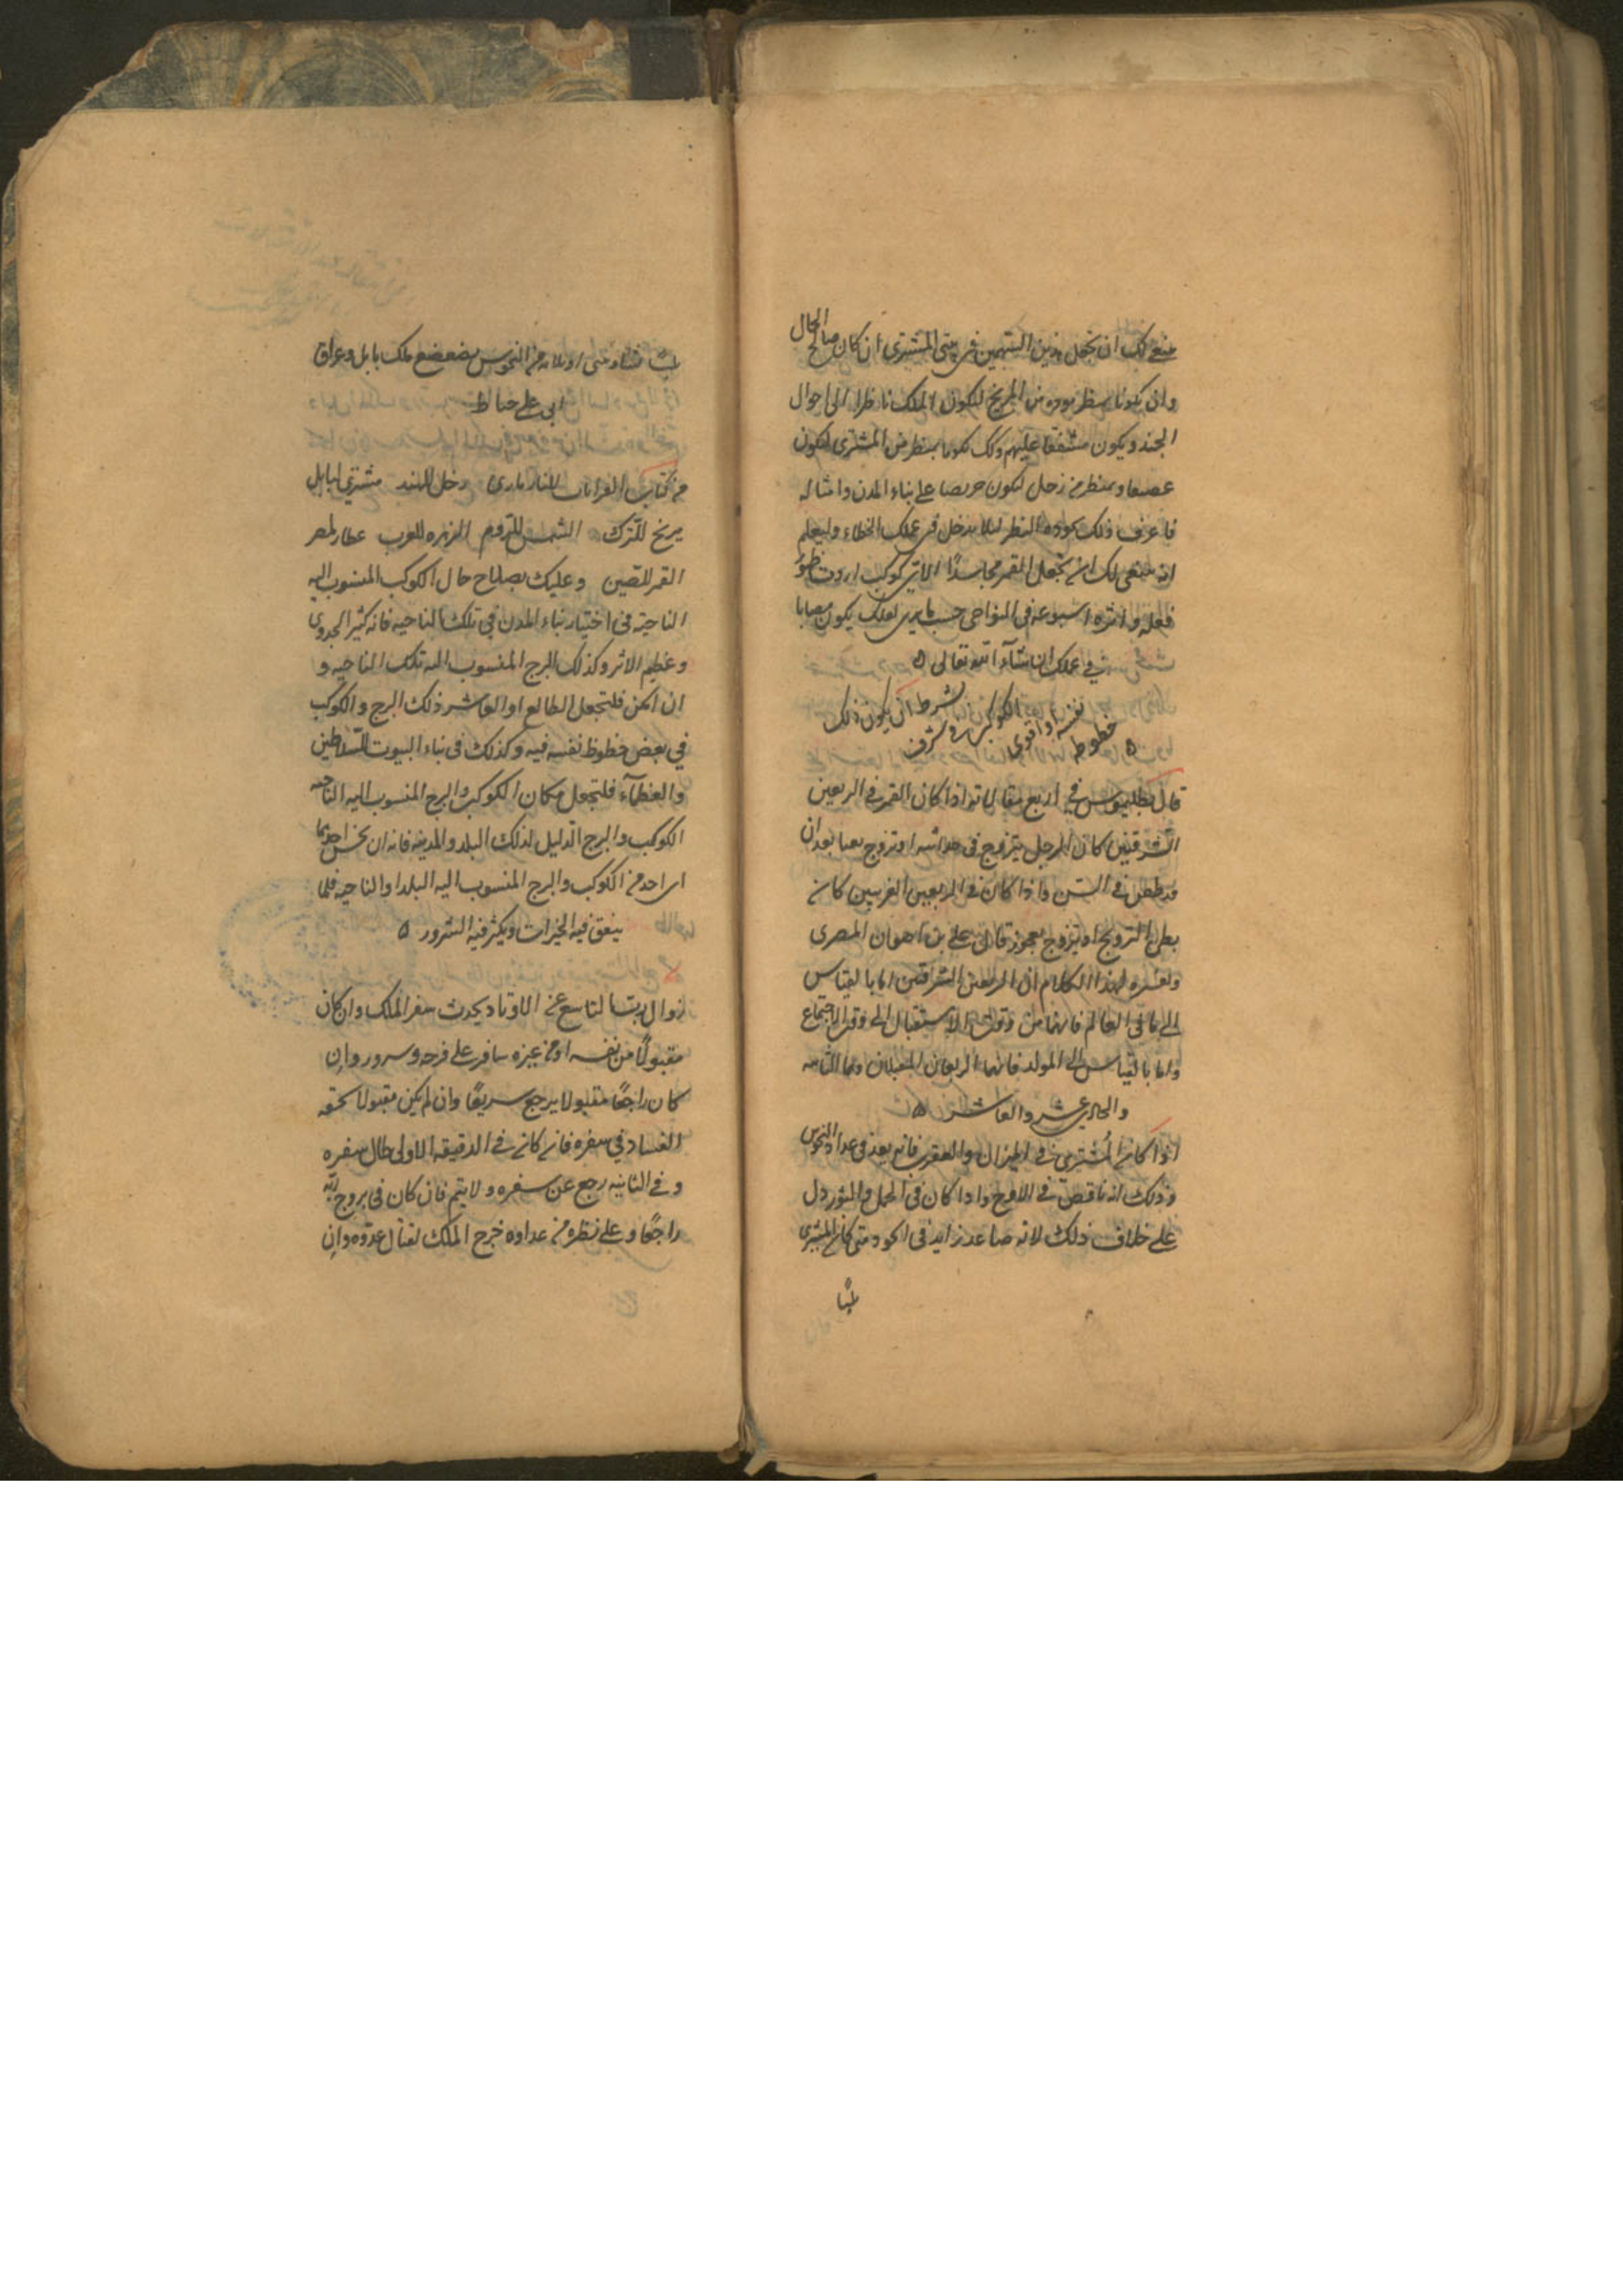 ينبغي لك ان تجعل هذين السهمين في بيتي المشتري ان كان صالح الحال
وان يكونا بنظر مودة من المريخ ليكون الملك ناظرا الى احوال
الجند ويكون مشفقا عليهم وكك يكونا بنظر من المشتري ليكون
عفيفا وبنظر من زحل ليكون حريصا على بناء المدن وامثاله
فاعرف ذلك بجودة النظر لئلا يدخل في عملك الخطاء وليعلم
انه ينبغي لك ان تجعل القمر مجاسدًا لاي كوكب اردت ظهور
فعله واثره في النواحي حسب ما يرى لعلك يكون مصابا
في عملك ان شاء الله تعالى ٥
بشرط ان يكون ذلك
الكوكب في شرف
نفسه او اقوى
حظوظه ٥
قال بطليموس في اربع مقالاته اذا كان القمر في الربعين
الشرقيين كان الرجل يتزوج في حداثته او تزوج بعد ان
قد طعن في السن واذا كان في الربعين الغربيين كان
بطى التزويج او يتزوج بعجوز قال علي بن رضوان المصري
وتفسيره لهذا الكلام ان الربعين الشرقيين اما بالقياس
الى ما في العالم فانهما من وقت الاستقبال الى وقت الاجتماع
واما بالقياس الى المولد فانهما الربعان المقبلان وهما الثامنة
والحادي عشر والعاشر ٥
اذا كان المشتري في الميزان والعقرب فانه يعد في عداد النحوس
وذلك انه ناقص في الاوج واذا كان في الحمل والثور دل
على خلاف ذلك لانه صاعد زايد في ومتى كان المشتري
بليّا
بليّا من النحوس تضعضع ملك بابل وعراق
ابي علي خياط
من كتاب القرانات للنازياري زحل للهند مشتري لبابل
مريخ للترك الشمس للروم الزهرة للعرب عطارد لمصر
القمر للصين وعليك بصلاح حال الكوكب المنسوب اليه
الناحية في اختيار بناء المدن في تلك الناحيه فانه كثير الجدوى
وعظيم الاثر وكذلك البرج المنسوب اليه تلك الناحيه و
ان امكن فلتجعل الطالع او العاشر ذلك البرج والكوكب
في بعض حظوظ نفسه فيه وكذلك في بناء البيوت للسلاطين
والعظمآء فلتجعل مكان الكوكب والبرج المنسوب اليه الناحيه
الكوكب والبرج الدليل لذلك البلد والمدينه فانه ان نحس احدهما
اى احد من الكوكب والبرج المنسوب اليه البلد او الناحيه فلما
يتفق فيه الخيرات ويكثر فيه الشرور ٥
زوال رب التاسع عن الاوتاد يحدث سفر الملك وان كان
مقبولًا من نفسه او من غيره سافر على فرحه وسرور وان
كان راجعًا مقبولا يرجع سريعًا وان لم يكن مقبولا لحقه
الفساد في سفره فان كان في الدقيقه الاولى طال سفره
وفي الثانيه رجع عن سفره ولا يتم فان كان في بروج
راجعًا وعلى نظره من عداوة خرج الملك لقتال عدوه وان